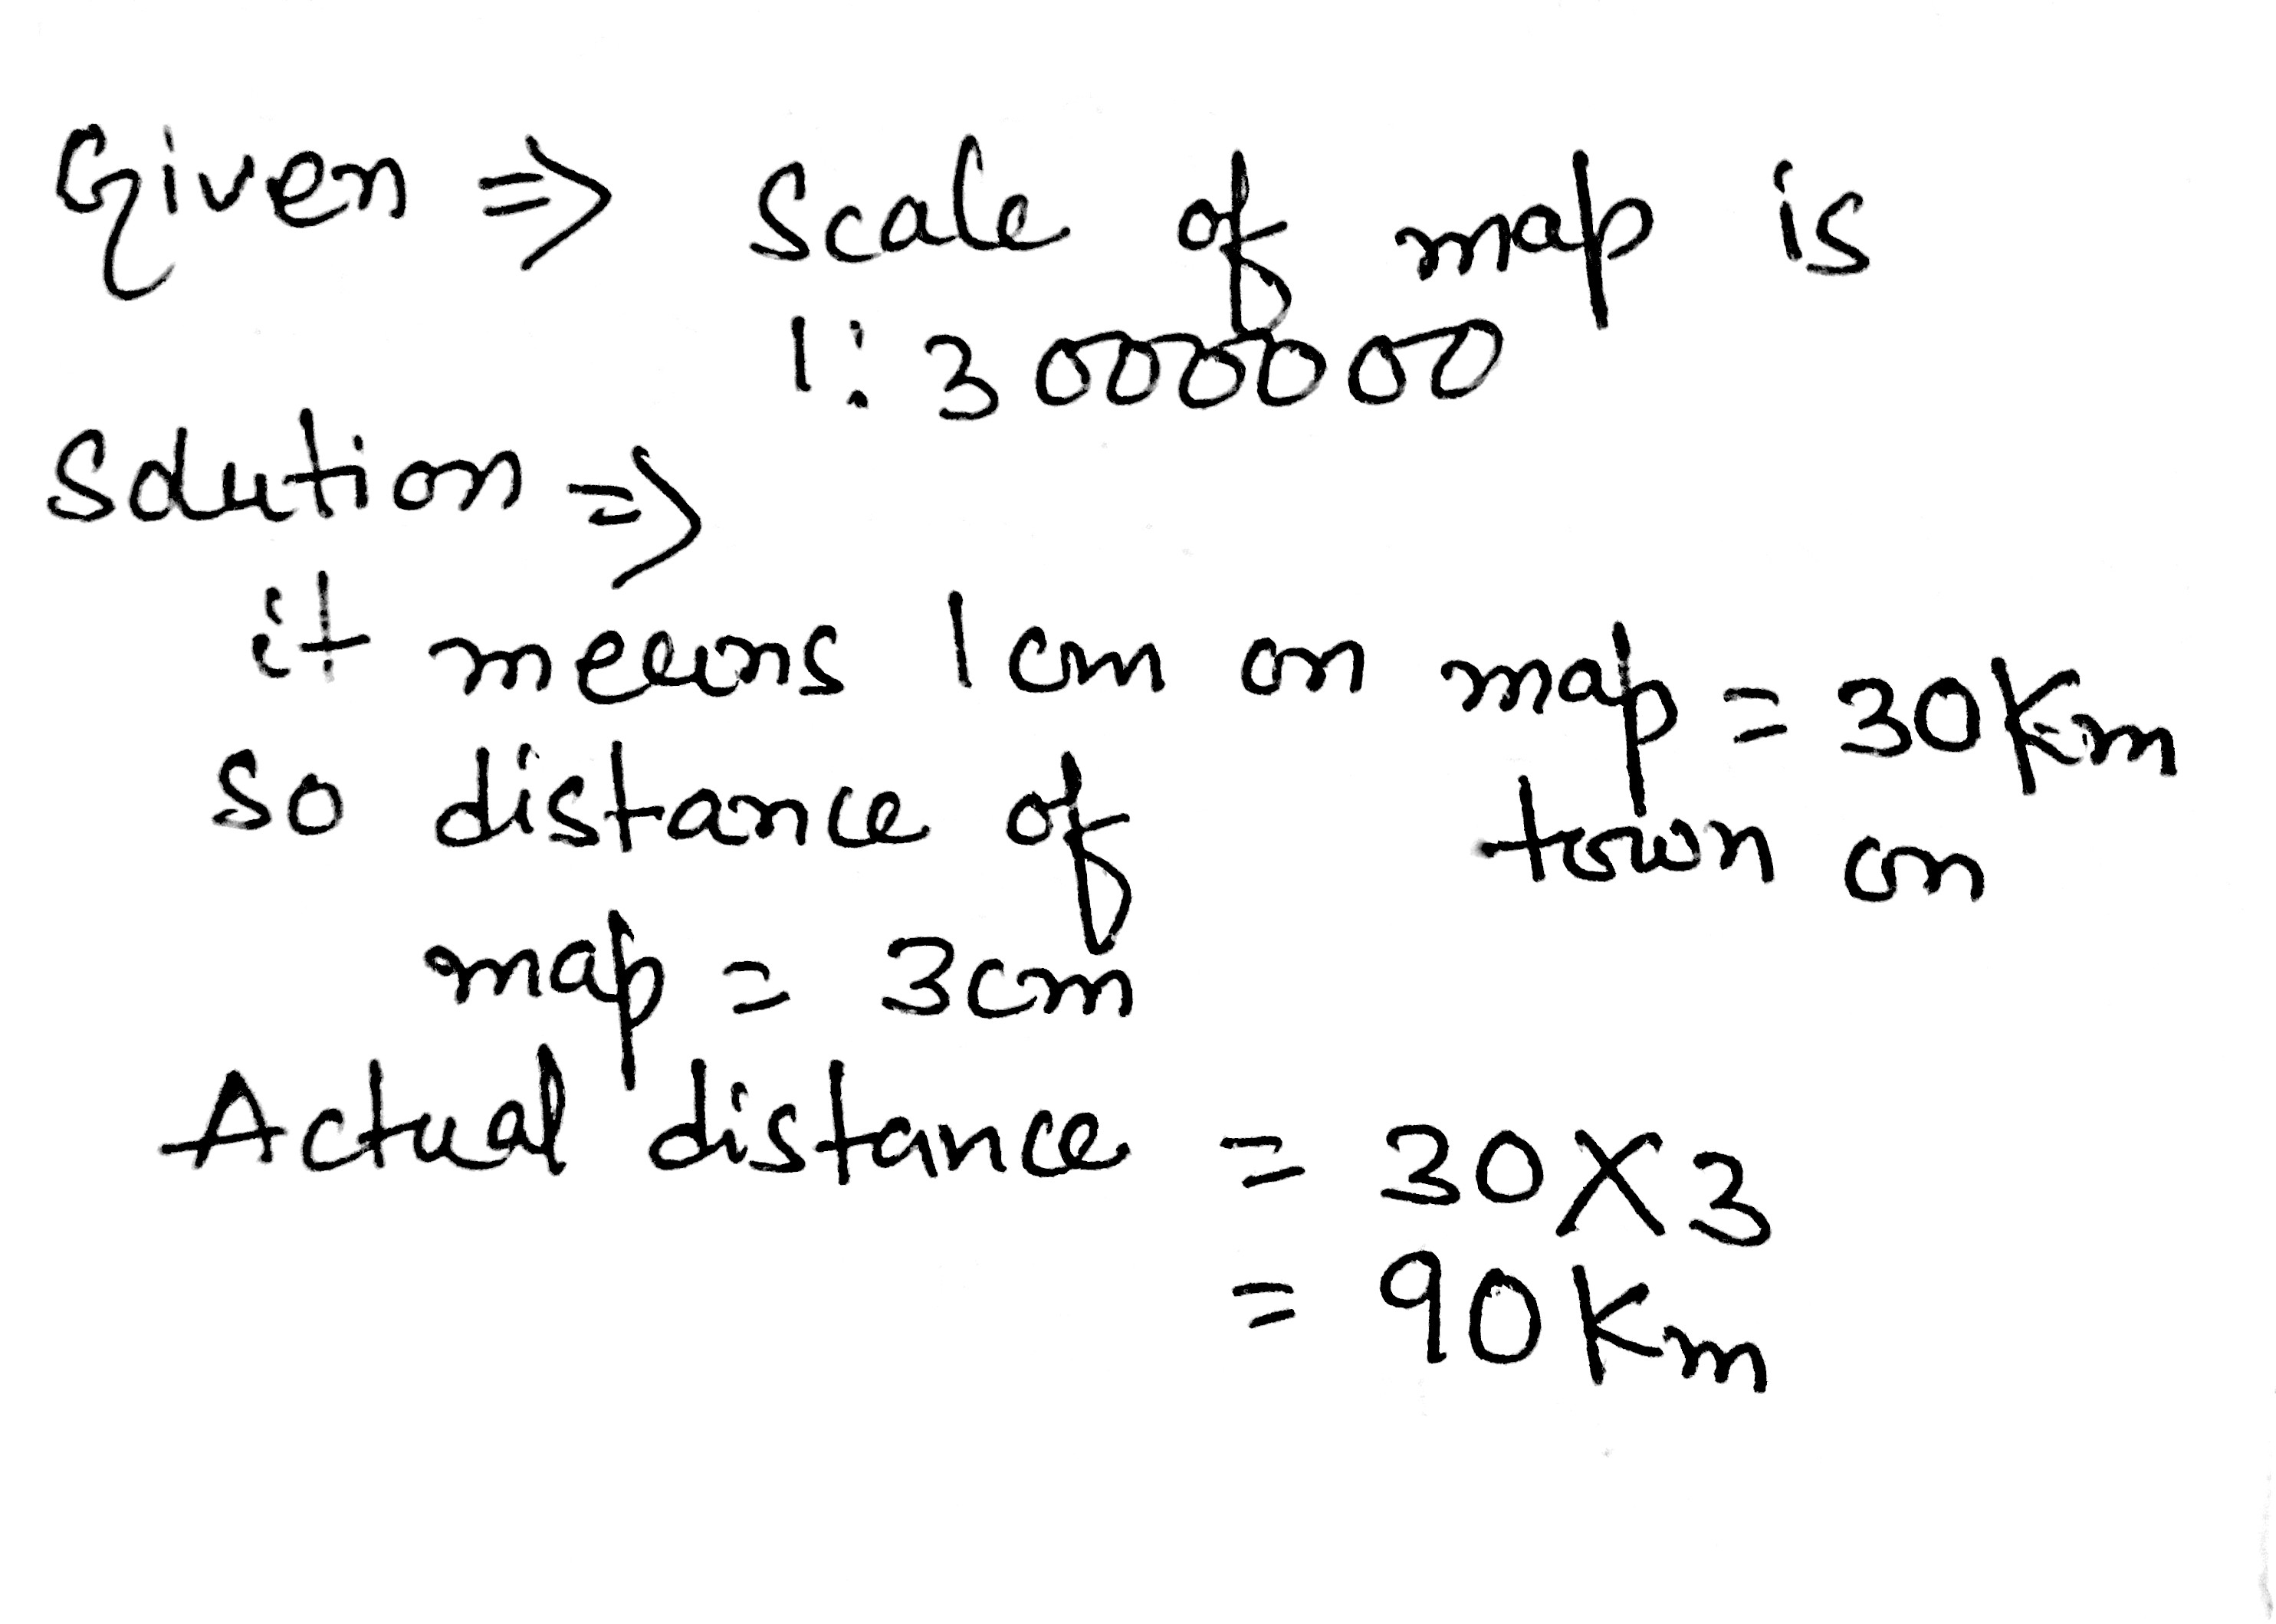 Given => Scale of map is
1:3000000
Solution =>
it means 1cm on map = 30Km
so distance of town on
map = 3cm
Actual distance = 30X3
= 90Km